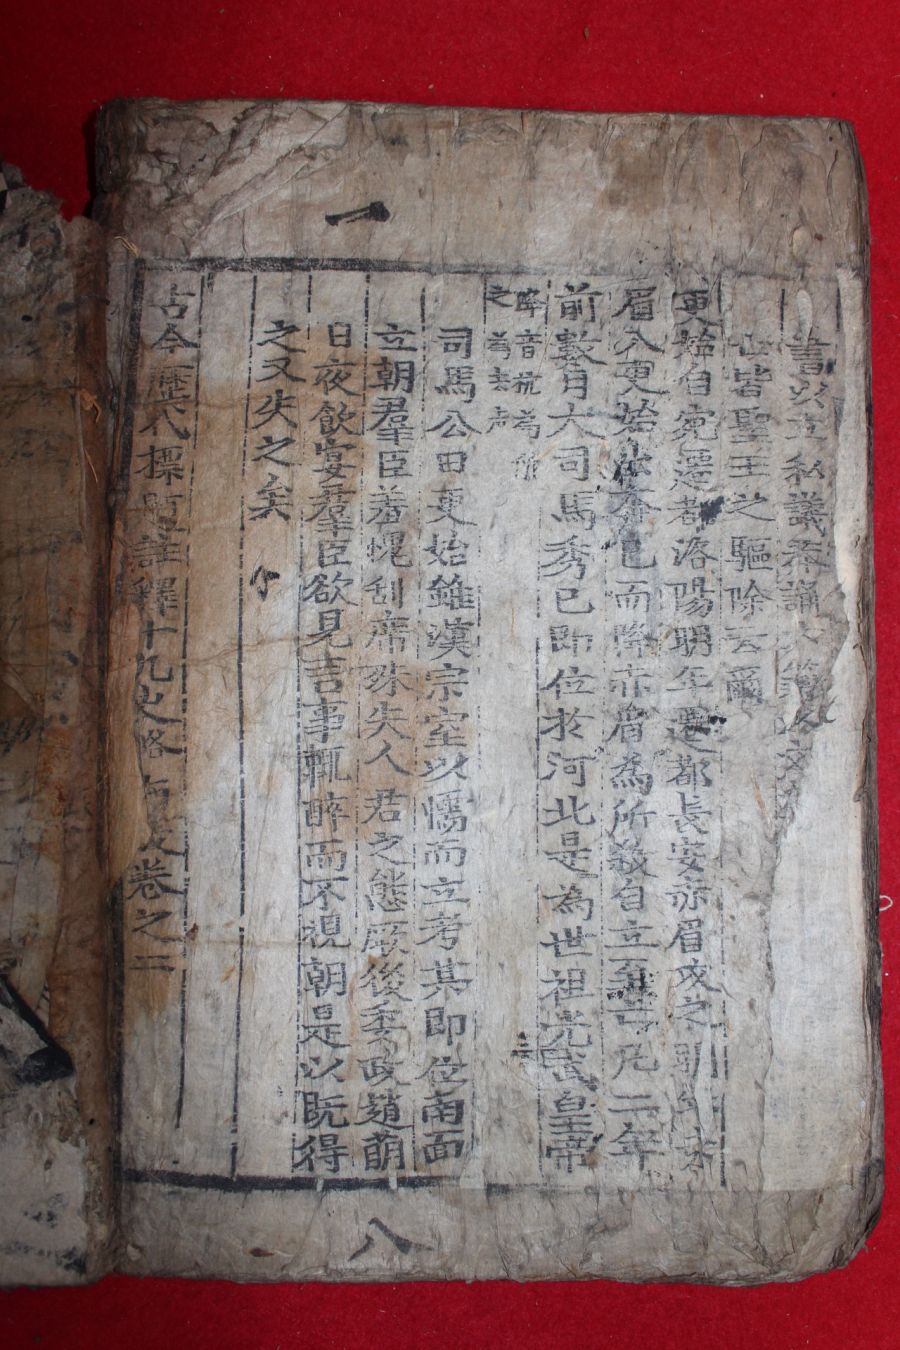 一
書以立私議莽誦六藝以文
世皆聖王之驅除云爾
更始自宛遷都洛陽明年遷都長安赤眉攻之
眉入更始出奔已而降赤眉為所殺自立至亡凡二年
前數月大司馬秀已即位於河北是為世祖光武皇帝
降音杭為所
之為去声
司馬公曰更始雖漢宗室以懦而立考其即位南面
立朝羣臣羞愧刮席殊失人君之態厥後委政趙萌
日夜飲宴羣臣欲見言事輒醉而不視朝是以既得
之又失之矣
古今歷代標題註釋十九史略通攷卷之二
八